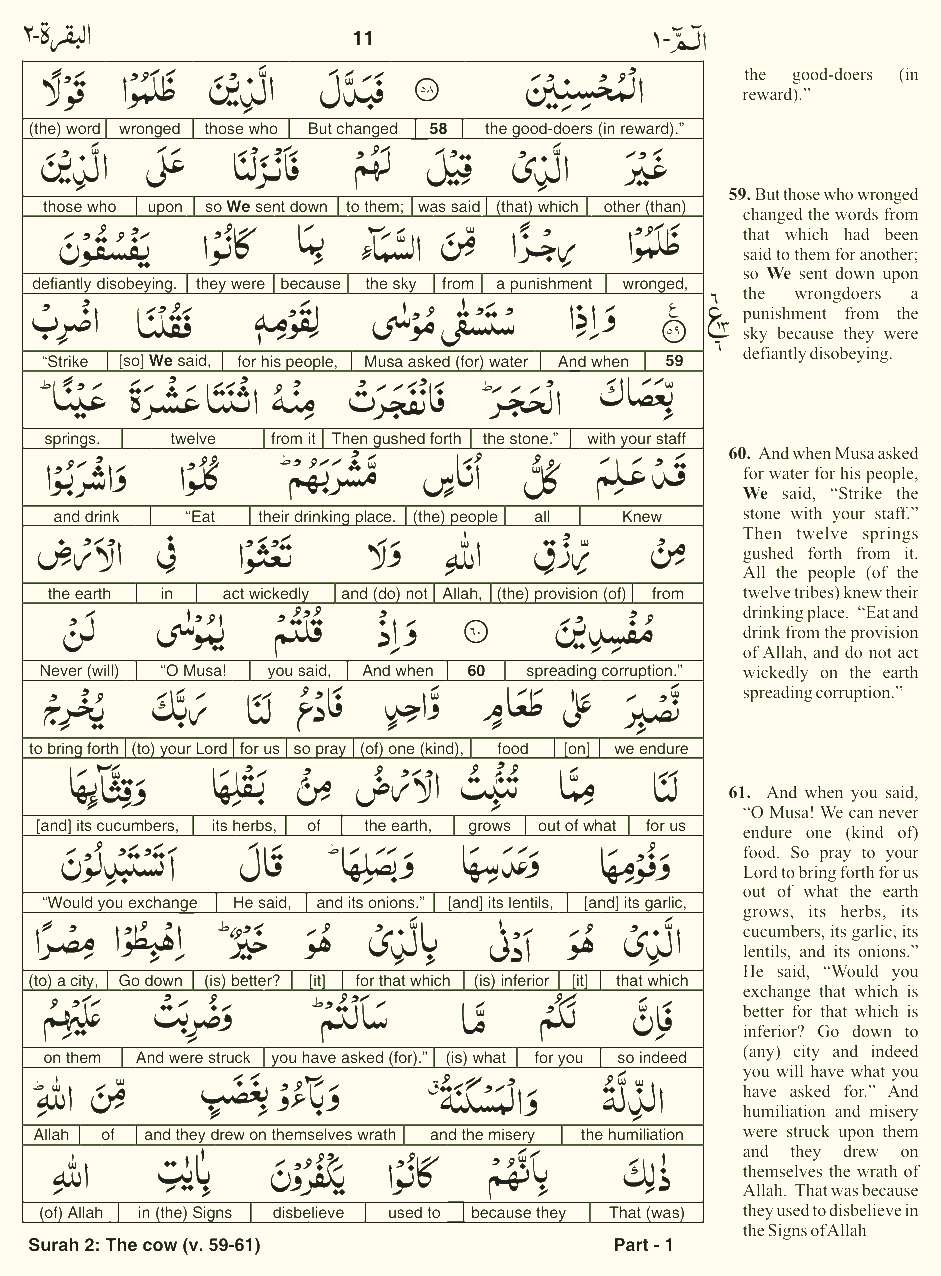 الٓمّٓ-١ 11 البقرة-٢
الْمُحْسِنِيْنَ ﴿٥٨﴾ فَبَدَّلَ الَّذِيْنَ ظَلَمُوْا قَوْلًا
the good-doers (in reward).” 58 But changed those who wronged (the) word
غَيْرَ الَّذِىْ قِيْلَ لَهُمْ فَاَنْزَلْنَا عَلَى الَّذِيْنَ
other (than) (that) which was said to them; so We sent down upon those who
ظَلَمُوْا رِجْزًا مِّنَ السَّمَآءِ بِمَا كَانُوْا يَفْسُقُوْنَ
wronged, a punishment from the sky because they were defiantly disobeying.
﴿٥٩﴾ ع وَاِذِ اسْتَسْقٰى مُوْسٰى لِقَوْمِهٖ فَقُلْنَا اضْرِبْ
59 And when Musa asked (for) water for his people, [so] We said, “Strike
بِّعَصَاكَ الْحَجَرَ ؕ فَانْفَجَرَتْ مِنْهُ اثْنَتَا عَشْرَةَ عَيْنًا ؕ
with your staff the stone.” Then gushed forth from it twelve springs.
قَدْ عَلِمَ كُلُّ اُنَاسٍ مَّشْرَبَهُمْ ؕ كُلُوْا وَاشْرَبُوْا
Knew all (the) people their drinking place. “Eat and drink
مِنْ رِّزْقِ اللّٰهِ وَلَا تَعْثَوْا فِى الْاَرْضِ
from (the) provision (of) Allah, and (do) not act wickedly in the earth
مُفْسِدِيْنَ ﴿٦٠﴾ وَاِذْ قُلْتُمْ يٰمُوْسٰى لَنْ
spreading corruption.” 60 And when you said, “O Musa! Never (will)
نَّصْبِرَ عَلٰى طَعَامٍ وَّاحِدٍ فَادْعُ لَنَا رَبَّكَ يُخْرِجْ
we endure [on] food (of) one (kind), so pray for us (to) your Lord to bring forth
لَنَا مِمَّا تُنْۢبِتُ الْاَرْضُ مِنْۢ بَقْلِهَا وَقِثَّآئِهَا
for us out of what grows the earth, of its herbs, [and] its cucumbers,
وَفُوْمِهَا وَعَدَسِهَا وَبَصَلِهَا ؕ قَالَ اَتَسْتَبْدِلُوْنَ
[and] its garlic, [and] its lentils, and its onions.” He said, “Would you exchange
الَّذِىْ هُوَ اَدْنٰى بِالَّذِىْ هُوَ خَيْرٌ ؕ اِهْبِطُوْا مِصْرًا
that which [it] (is) inferior for that which [it] (is) better? Go down (to) a city,
فَاِنَّ لَكُمْ مَّا سَاَلْتُمْ ؕ وَضُرِبَتْ عَلَيْهِمُ
so indeed for you (is) what you have asked (for).” And were struck on them
الذِّلَّةُ وَالْمَسْكَنَةُ ۗ وَبَآءُوْ بِغَضَبٍ مِّنَ اللّٰهِ ؕ
the humiliation and the misery and they drew on themselves wrath of Allah
ذٰلِكَ بِاَنَّهُمْ كَانُوْا يَكْفُرُوْنَ بِاٰيٰتِ اللّٰهِ
That (was) because they used to disbelieve in (the) Signs (of) Allah
٦
ع ١٣
٦
the good-doers (in
reward).”
59. But those who wronged
changed the words from
that which had been
said to them for another;
so We sent down upon
the wrongdoers a
punishment from the
sky because they were
defiantly disobeying.
60. And when Musa asked
for water for his people,
We said, “Strike the
stone with your staff.”
Then twelve springs
gushed forth from it.
All the people (of the
twelve tribes) knew their
drinking place. “Eat and
drink from the provision
of Allah, and do not act
wickedly on the earth
spreading corruption.”
61. And when you said,
“O Musa! We can never
endure one (kind of)
food. So pray to your
Lord to bring forth for us
out of what the earth
grows, its herbs, its
cucumbers, its garlic, its
lentils, and its onions.”
He said, “Would you
exchange that which is
better for that which is
inferior? Go down to
(any) city and indeed
you will have what you
have asked for.” And
humiliation and misery
were struck upon them
and they drew on
themselves the wrath of
Allah. That was because
they used to disbelieve in
the Signs of Allah
Surah 2: The cow (v. 59-61) Part - 1